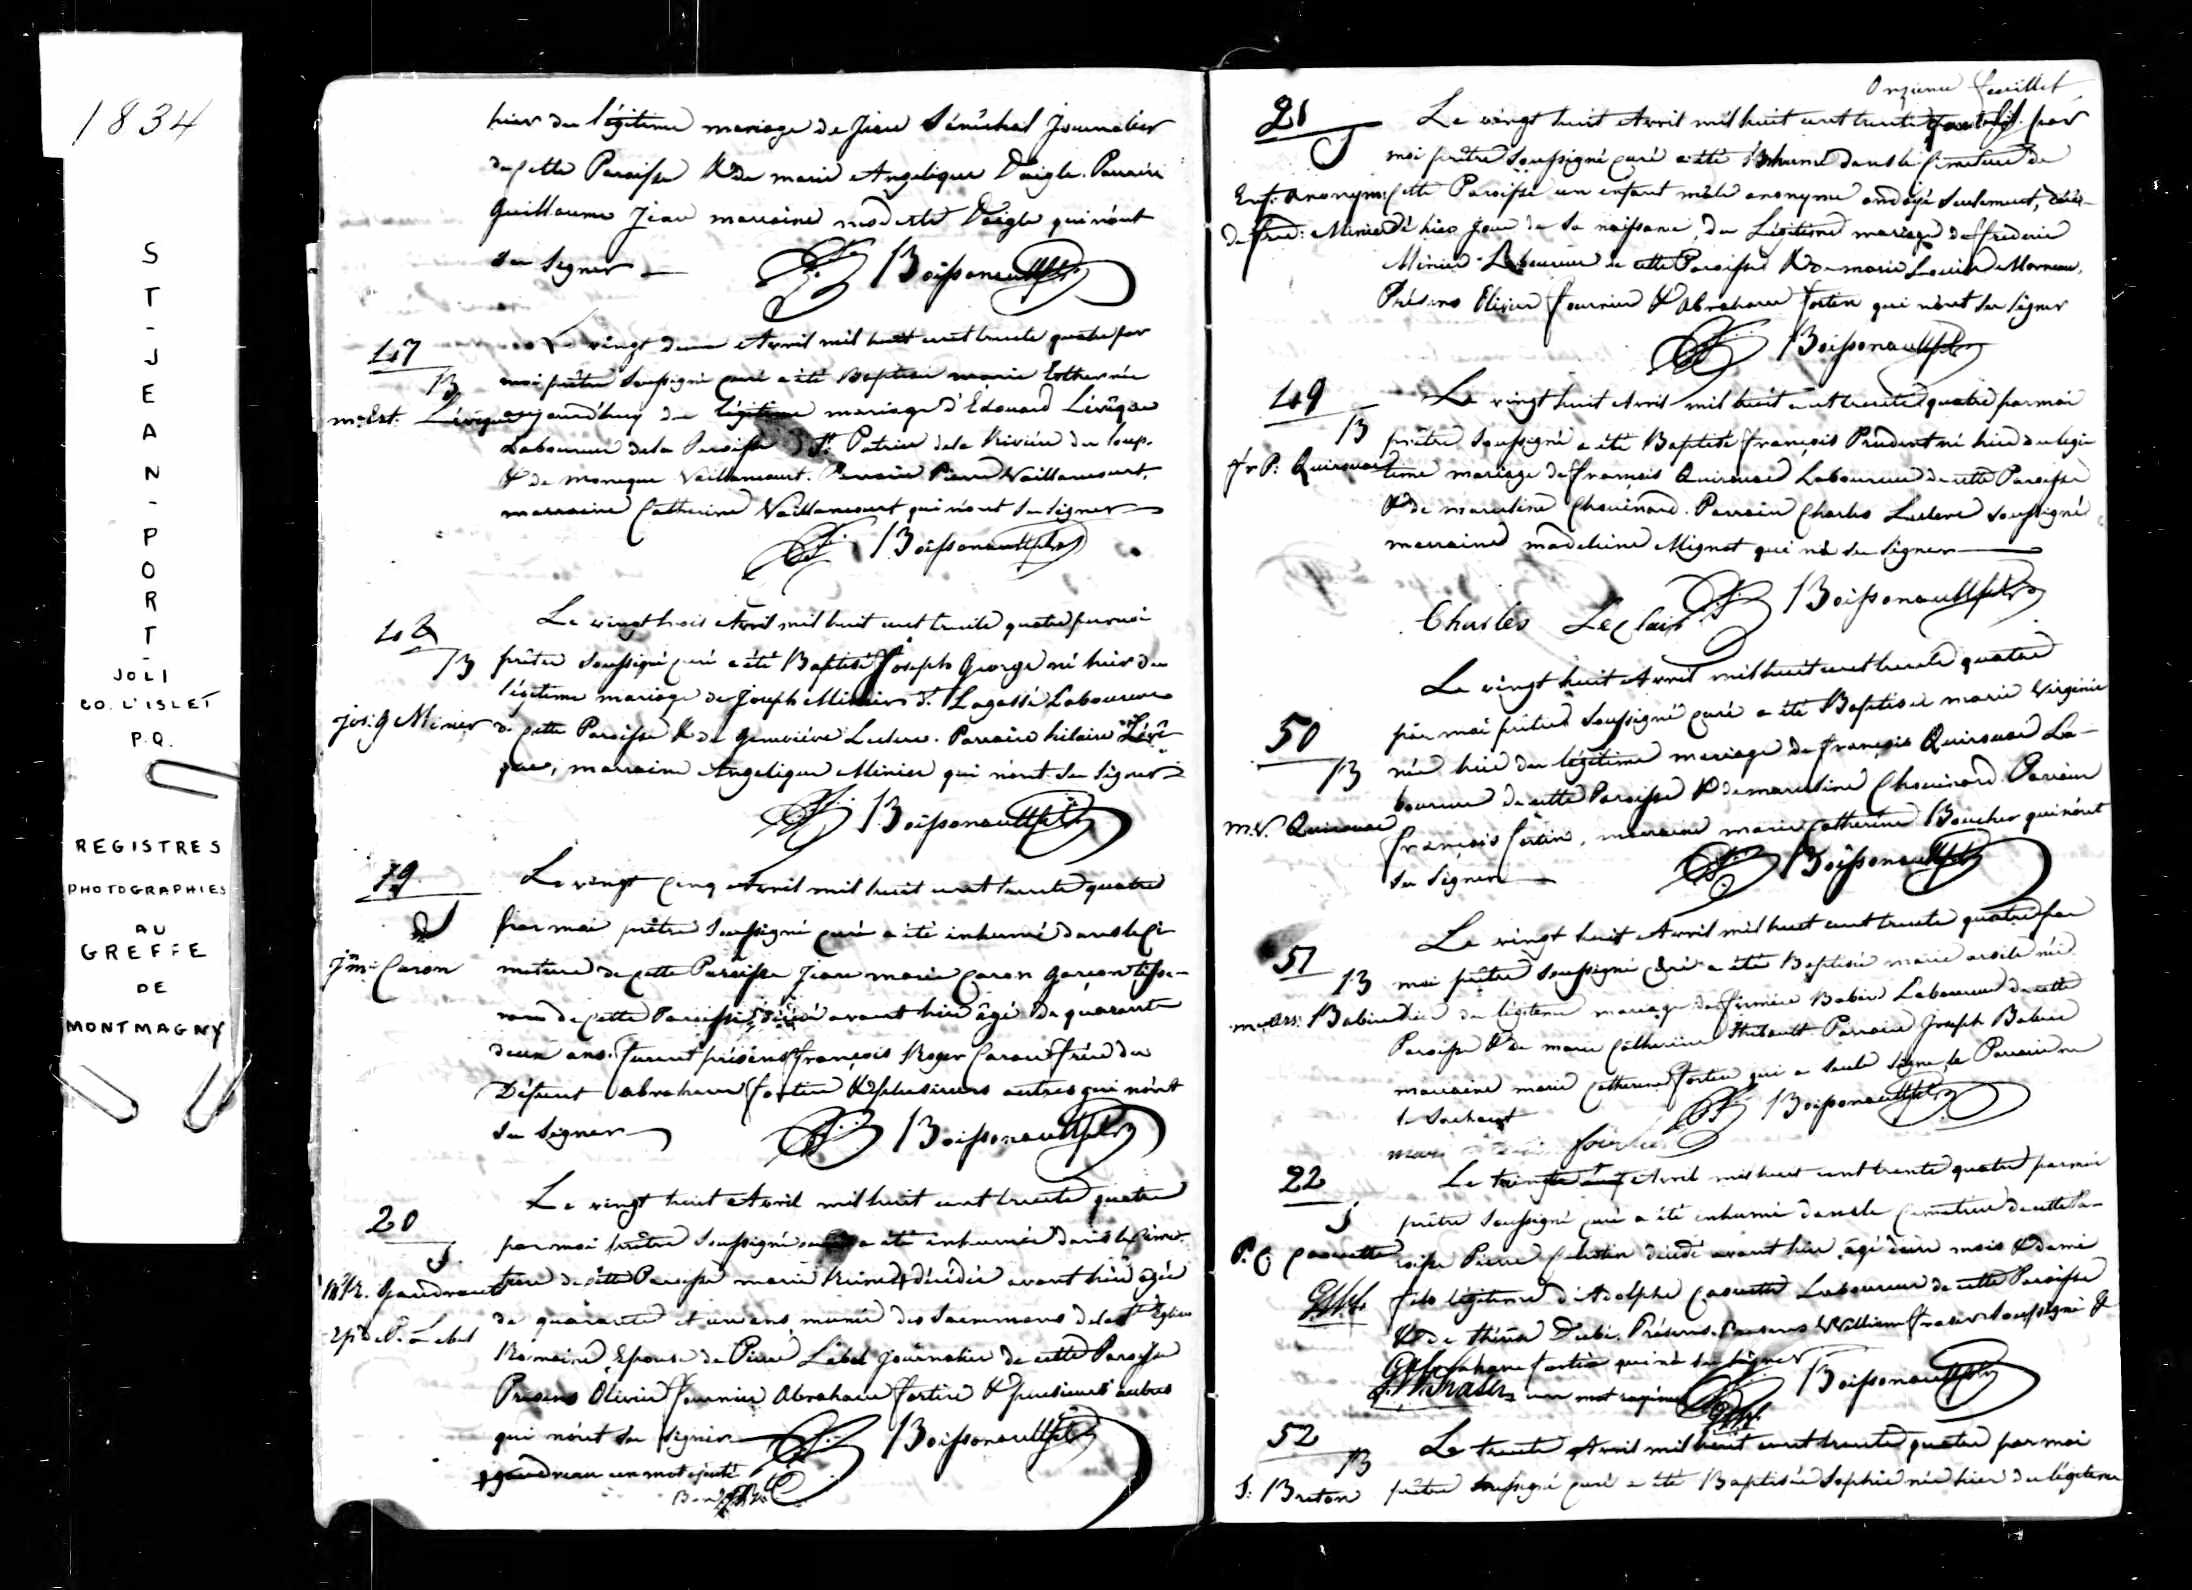 1834
ST-JEAN-PORT-
JOLI
CO. L'ISLET
P.Q.
REGISTRES
PHOTOGRAPHIES
AU
GREFFE
DE
MONTMAGNY
hier du légitime mariage de Jean Sénéchal Journalier
de cette Paroisse & de marie Angelique Daigle. Parrain
Guillaume Jean marraine modeste Daigle qui n'ont
su signer
Boissonnault ptre
47
B
m: Est. Lévêque
Le vingt deux Avril mil huit cent trente quatre par
moi prêtre soussigné curé a été Baptisée marie Esther née
aujourd'huy du légitime mariage d'Edouard Lévêque
Laboureur de la Paroisse St. Patrice de la Rivière du Loup.
& de monique Vaillancourt. Parrain Pierre Vaillancourt,
marraine Catherine Vaillancourt qui n'ont su signer
Boissonnault ptre
48
B
Jos: G Minier
Le vingt trois Avril mil huit cent trente quatre par moi
prêtre soussigné curé a été Baptisé Joseph George né hier du
légitime mariage de Joseph Minier dt. Lagassé Laboureur
de cette Paroisse & de Geneviéve Leclerc. Parrain hilaire Lévê-
que, marraine Angelique Minier qui n'ont su signer
Boissonnault ptre
19
S
Jn m: Caron
Le vingt cinq Avril mil huit cent trente quatre
par moi prêtre soussigné curé a été inhumé dans le ci-
metiere de cette Paroisse Jean marie Caron garçon
de cette Paroisse décédé avant hier âgé de quarante
deux ans. furent présens françois Roger Caron frère du
Défunt abraham fortin & plusieurs autres qui n'ont
su signer
Boissonnault ptre
20
S
Gaudreau
Ep: de P. Lebel
Le vingt huit Avril mil huit cent trente quatre
par moi prêtre soussigné curé a été inhumée dans le cime-
tiere de cette Paroisse marie Reine décédée avant hier agée
de quarante et un ans, munie des Sacremens de la Ste Eglise
Romaine, Epouse de Pierre Lebel Journalier de cette Paroisse
Présens Olivier fournier Abraham fortin & plusieurs autres
qui n'ont su signer
Boissonnault ptre
gaudreau un mot ajouté
Onzieme feuillet
21
S
Enf: Anonyme
de fred: Minier
Le vingt huit Avril mil huit cent trente quatre par
moi prêtre soussigné curé a été Inhumé dans le Cimetiere de
Cette Paroisse un enfant mâle anonyme ondoyé seulement, décé-
dé hier jour de sa naissance, du Légitime mariage de frederic
Minier Laboureur de cette Paroisse & de marie Louise Morneau,
Présens Olivier fournier & Abraham fortin qui n'ont su signer
Boissonnault ptre
49
B
fr P: Quirouac
Le vingt huit Avril mil huit cent trente quatre par moi
prêtre soussigné a été Baptisé françois Prudent né hier du legi-
time mariage de françois Quirouac Laboureur de cette Paroisse
& de marceline Chouinard. Parrain Charles Leclerc soussigné
marraine madeleine Mignot qui n'a su signer
Boissonnault ptre
Charles Leclair
50
B
m.V. Quirouac
Le vingt huit Avril mil huit cent trente quatre
par moi prêtre soussigné curé a été Baptisée marie Virginie
née hier du légitime mariage de françois Quirouac La-
boureur de cette Paroisse & de marceline Chouinard Parrain
françois fortin, marraine marie Catherine Boucher qui n'ont
su signer
Boissonnault ptre
51
B
m: Ars: Babin
Le vingt huit Avril mil huit cent trente quatre par
moi prêtre soussigné curé a été Baptisée marie née
hier du légitime mariage de firmin Babin Laboureur de cette
Paroisse & de marie Catherine Thibault. Parrain Joseph Babin
marraine marie Catherine fortin qui a seule signé, le Parrain ne
le sachant
Boissonnault ptre
22
S
P. C Caouette
Le Avril mil huit cent trente quatre par moi
prêtre soussigné curé a été inhumé dans le Cimetiere de cette Pa-
roisse Pierre Celestin décédé avant hier, âgé d'un mois & demi
fils légitime d'Adolphe Caouette Laboureur de cette Paroisse
& de Présens William fraser soussigné &
Abraham fortin qui n'a su signer
Fraser un mot
Boissonnault ptre
52
B
S: Breton
Le trente Avril mil huit cent trente quatre par moi
prêtre soussigné curé a été Baptisée Sophie née hier du légitime